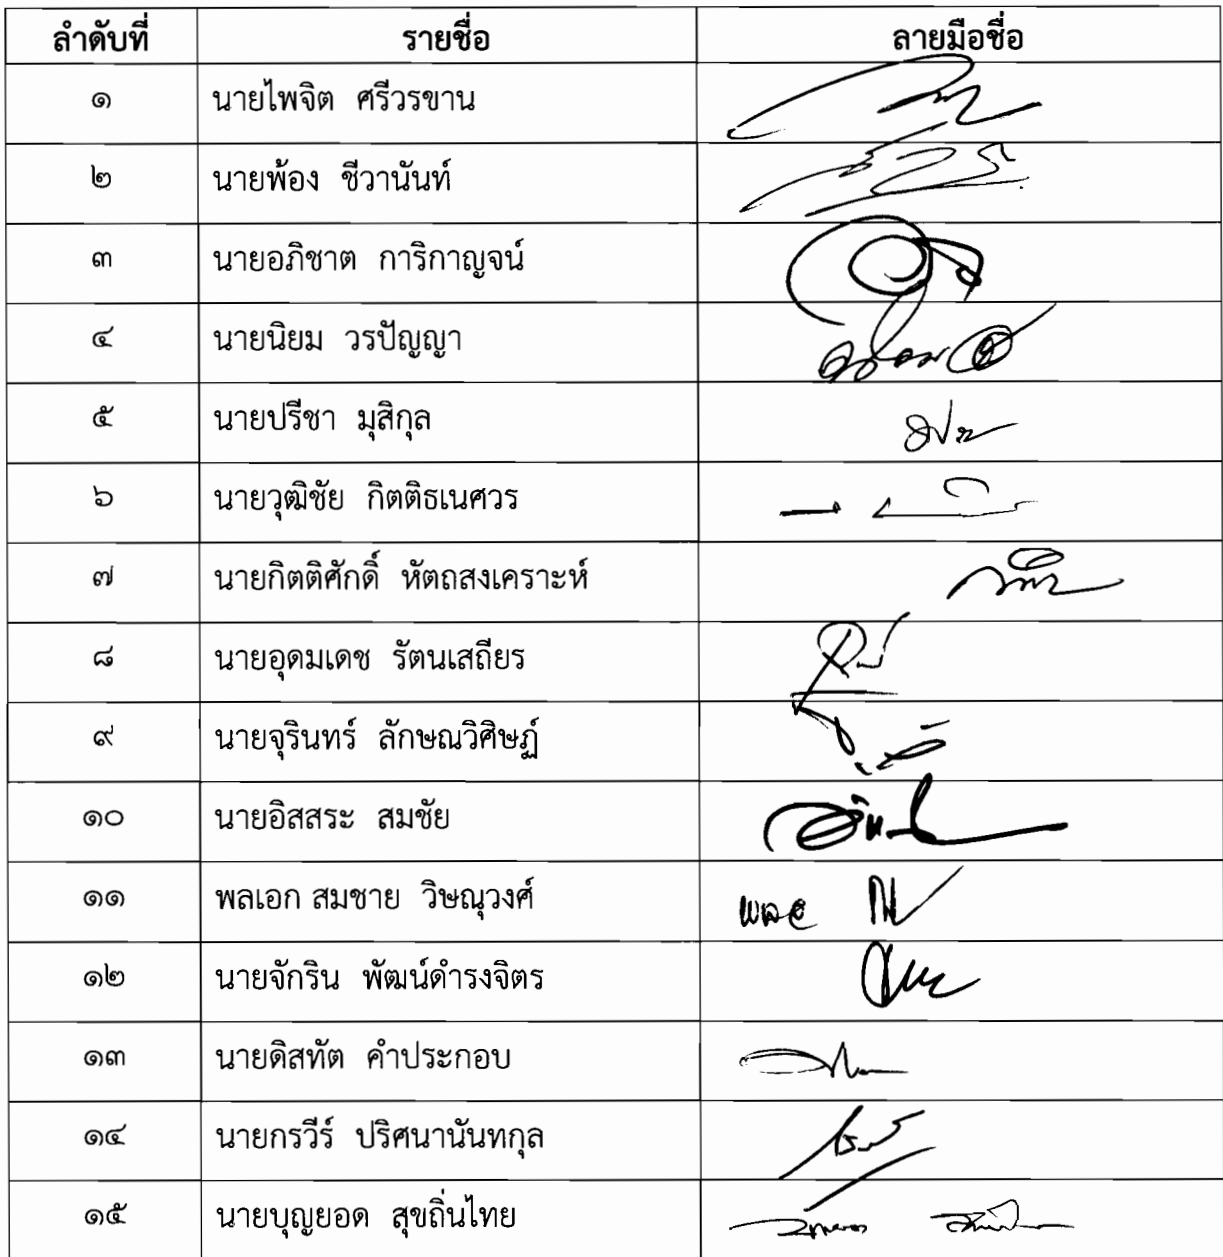 ลำดับที่ รายชื่อ ลายมือชื่อ
๑ นายไพจิต ศรีวรขาน
๒ นายพ้อง ชีวานันท์
๓ นายอภิชาต การิกาญจน์
๔ นายนิยม วรปัญญา
๕ นายปรีชา มุสิกุล
๖ นายวุฒิชัย กิตติธเนศวร
๗ นายกิตติศักดิ์ หัตถสงเคราะห์
๘ นายอุดมเดช รัตนเสถียร
๙ นายจุรินทร์ ลักษณวิศิษฏ์
๑๐ นายอิสสระ สมชัย
๑๑ พลเอก สมชาย วิษณุวงศ์
๑๒ นายจักริน พัฒน์ดำรงจิตร
๑๓ นายดิสทัต คำประกอบ
๑๔ นายกรวีร์ ปริศนานันทกุล
๑๕ นายบุญยอด สุขถิ่นไทย